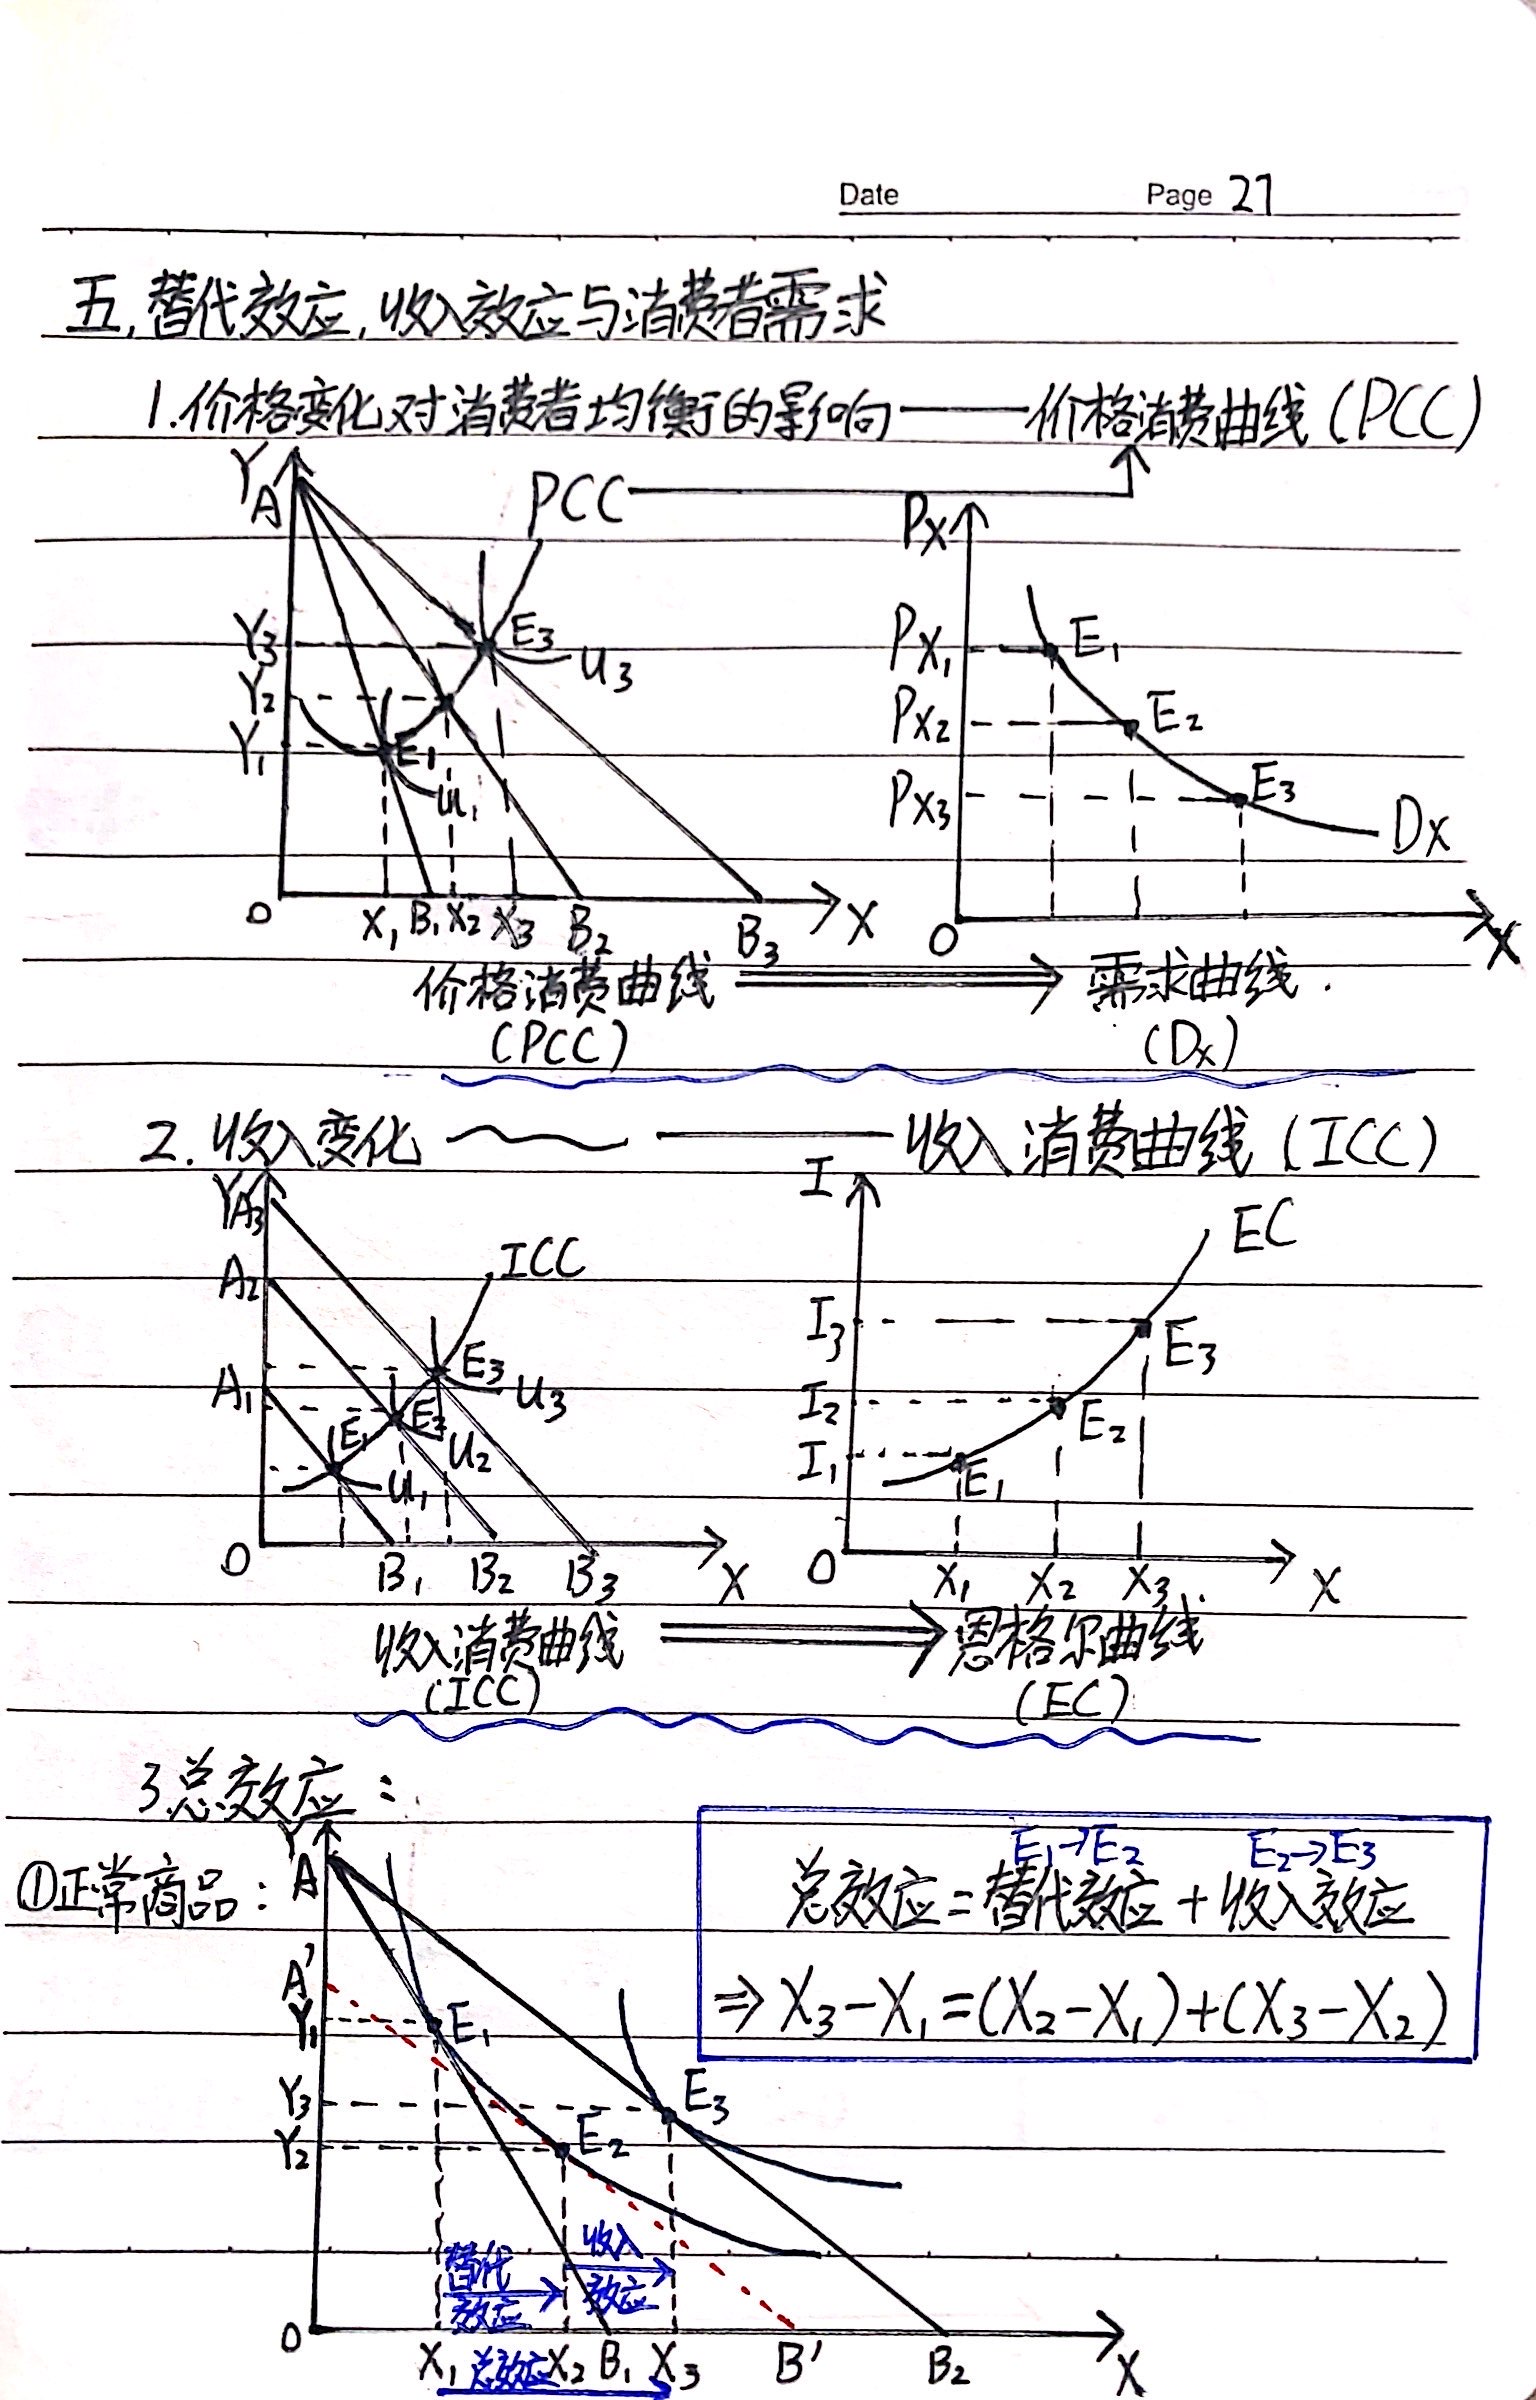 Date Page 27
五.替代效应,收入效应与消费者需求
1.价格变化对消费者均衡的影响——价格消费曲线(PCC)
Y
A
PCC
Y3
E3
U3
Y2
Y1
E1
U1
O X1 B1 X2 X3 B2 B3 X
PX
PX1 E1
PX2 E2
PX3 E3
DX
O X
价格消费曲线 ⟹ 需求曲线.
(PCC) (DX)
2.收入变化 ~ ——收入消费曲线(ICC)
Y
A3
ICC
A2
E3
A1 U3
E1 E2
U2
U1
O B1 B2 B3 X
I
EC
I3
E3
I2
E2
I1
E1
O X1 X2 X3 X
收入消费曲线 ⟹ 恩格尔曲线
(ICC) (EC)
3总效应:
①正常商品:
Y
A
A'
Y1 E1
Y3 E3
Y2 E2
替代效应
收入效应
O X1 总效应 X2 B1 X3 B' B2 X
E1→E2 E2→E3
总效应=替代效应+收入效应
⇒X3-X1=(X2-X1)+(X3-X2)